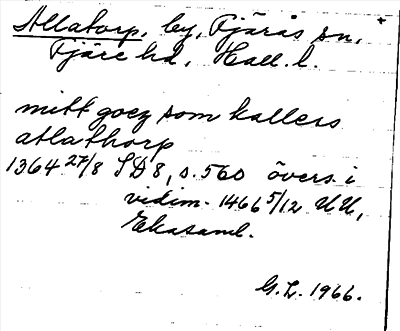 Allatorp, by, Fjärås sn,
Fjäre hd, Hall. l.
mitt goez som kallers
atlathorp
1364 27/8 SD 8, s. 560 övers. i
vidim. 1466 5/12 UU,
Ekasaml.
G.L. 1966.